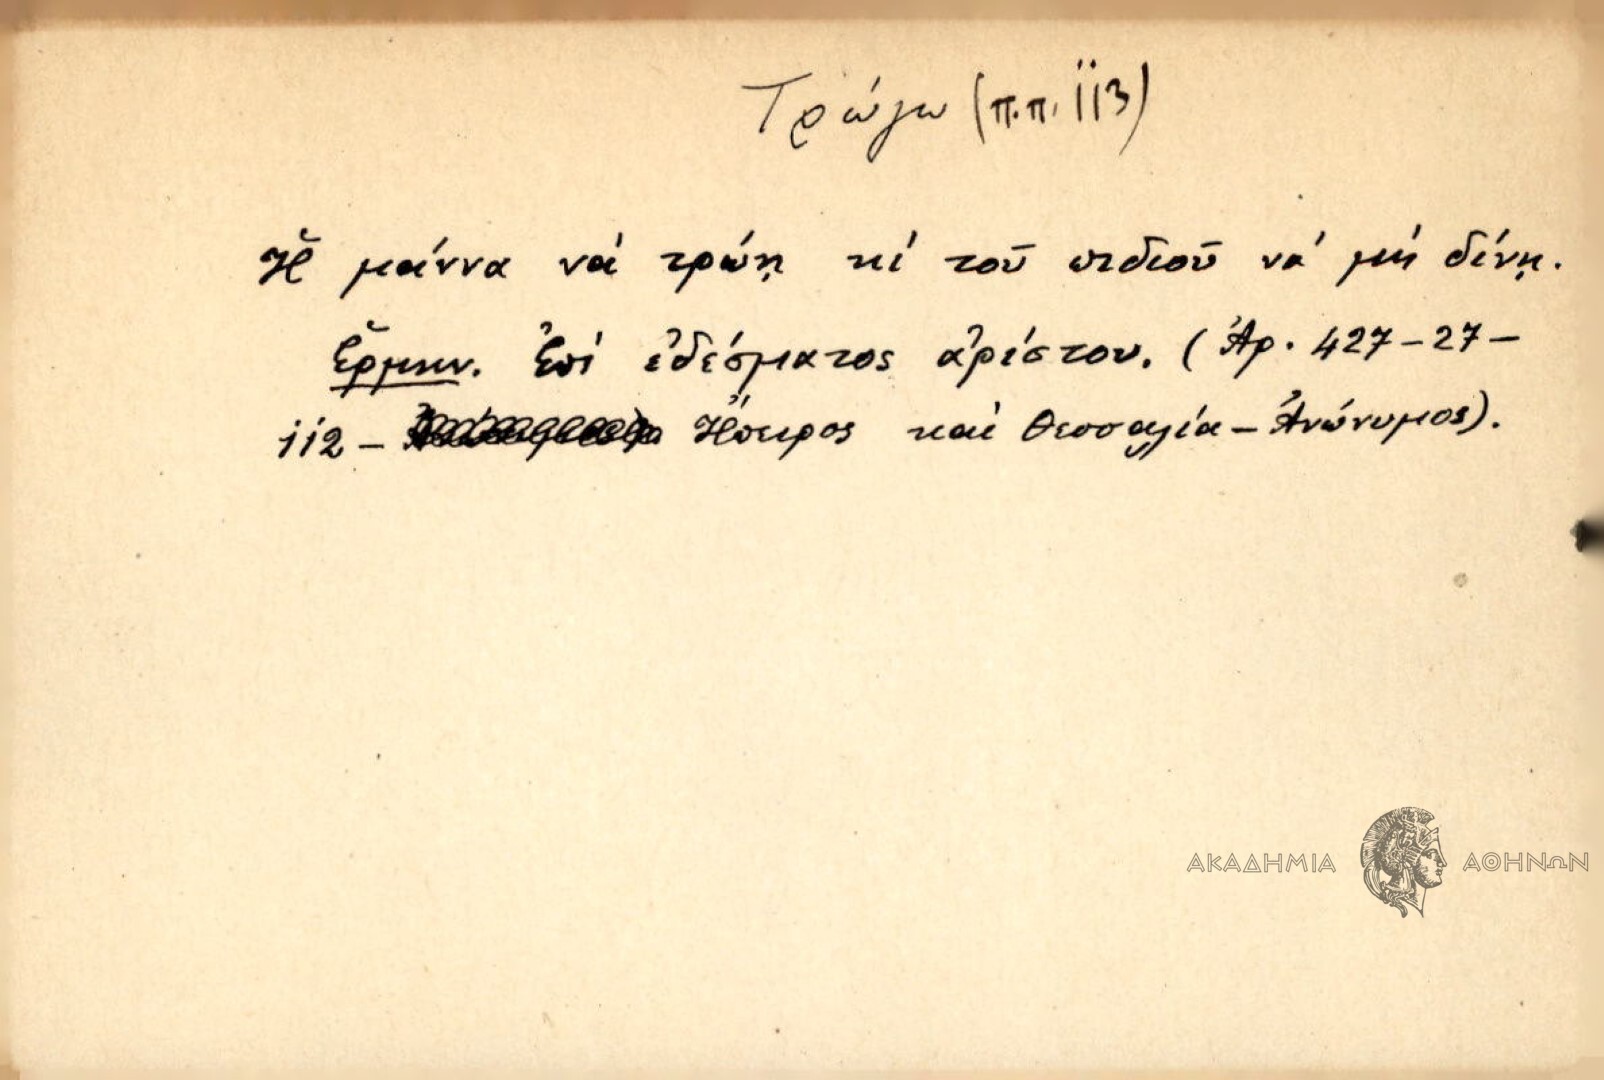 Τρώγω (π.π. 113)
Ἡ μάννα νά τρώῃ κί τοῦ πιδιοῦ νά μή δίνῃ.
Ἑρμην. Ἐπί ἐδέσματος ἀρίστου. (Ἀρ. 427-27-
112- Ἤπειρος καί Θεσσαλία - Ἀνώνυμος).
ΑΚΑΔΗΜΙΑ ΑΘΗΝΩΝ